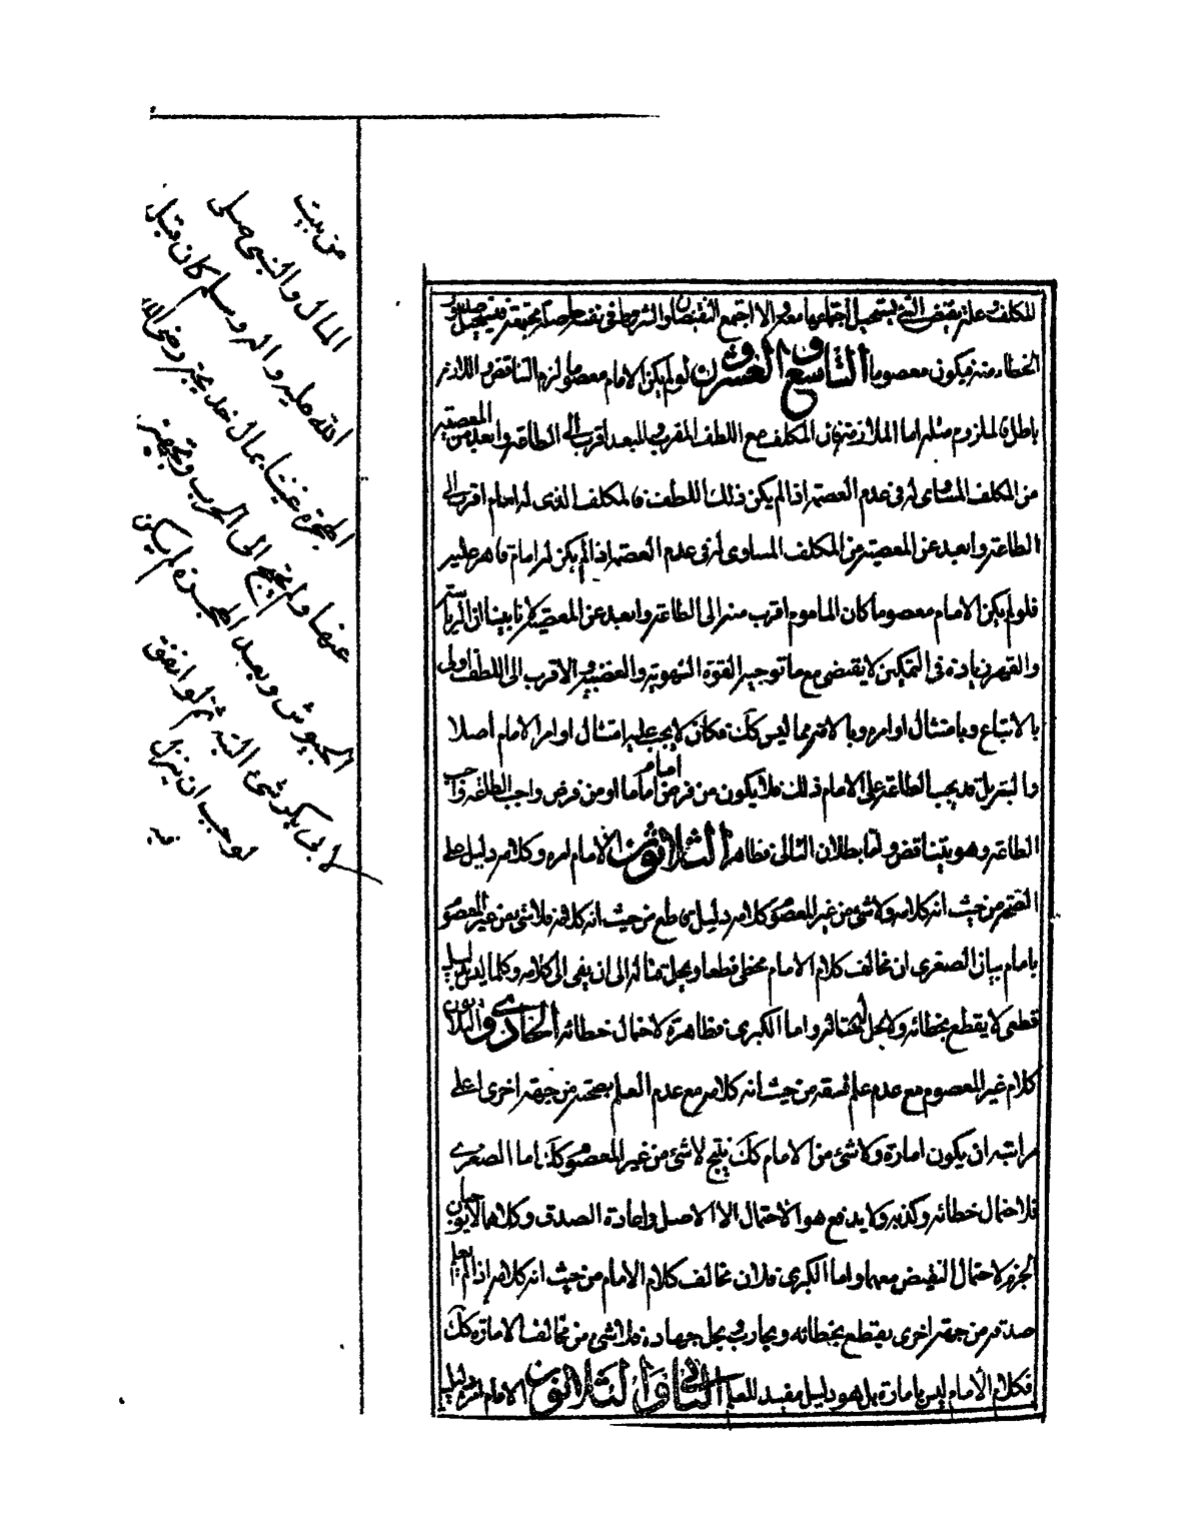 المكلف على نقيض التى يستحيل اجتماعها معه والا اجتمع النقيضان
الخطاء منه فيكون معصوما التاسع والعشرون لو لم يكن الامام معصوما لزم التناقض واللازم
باطل فالملزوم مثله اما الملازمة فان المكلف مع اللطف المقرب والمبعد اقرب الى الطاعة وابعد من المعصية
من المكلف المساوى له فى عدم العصمة اذا لم يكن ذلك اللطف فالمكلف الذى له امام اقرب الى
الطاعة وابعد عن المعصية من المكلف المساوى له فى عدم العصمة اذا لم يكن له امام قاهر عليه
فلو لم يكن الامام معصوما كان الماموم اقرب منه الى الطاعة وابعد عن المعصية لانا بينا ان الرياسة
والقهر زيادة فى التمكين لا يقتضى مع ما توجبه القوة الشهوية والغضبية والاقرب الى اللطف اولى
بالاتباع وبامتثال اوامره وبالاقتداء مما ليس كك فكان لا يجب عليه امتثال اوامر الامام اصلا
والبتة بل قد يجب الطاعة على الامام ذلك فلا يكون من فرض اماما امام او من فرض واجب الطاعة واجب
الطاعة وهو يتناقض واما بطلان التالى فظاهر الثلاثون الامام امره وكلامه دليل على
من حيث انه كلامه ولا شئ من غير المعصوم كلامه دليل قاطع من حيث انه كلامه فلا شئ من غير المعصوم
بامام بيان الصغرى ان مخالف كلام الامام مخطى قطعا ويحل قتاله الى ان يفى الى كلامه وكلما ليس بدليل
قطعى لا يقطع بخطائه ولا يحل قتاله واما الكبرى فظاهرة لاحتمال خطائه الحادى والثلاثون
كلام غير المعصوم مع عدم علم فسقه من حيث انه كلامه مع عدم العلم بصحته من جهة اخرى اعلى
مراتبه ان يكون امارة ولا شئ من الامام كك ينتج لا شئ من غير المعصوم كك اما الصغرى
فلاحتمال خطائه وكذبه ولا يدفع هو الاحتمال الا الاصل وعادة الصدق وكلاهما لا يوجبان
الجزم لاحتمال النقيض معهما واما الكبرى فلان مخالف كلام الامام من حيث انه كلامه اذا لم يعلم
صدقه من جهة اخرى يقطع بخطائه ويحارب ويحل جهاده فلا شئ من مخالف الامارة كك
فكلام الامام ليس بامارة بل هو دليل مفيد للعلم الثانى والثلاثون الامام امره دليل
من بيت
المال والنبى صلى
الله عليه واله وسلم كان قبل
الهجرة غنيا بمال خديجة رضى الله
عنها ولم يحتج الى الحرب وتجهيز
الجيوش وبعد الهجرة لم يكن
لابى بكر شئ البتة ثم لو انفق
لوجب ان ينزل
فيه